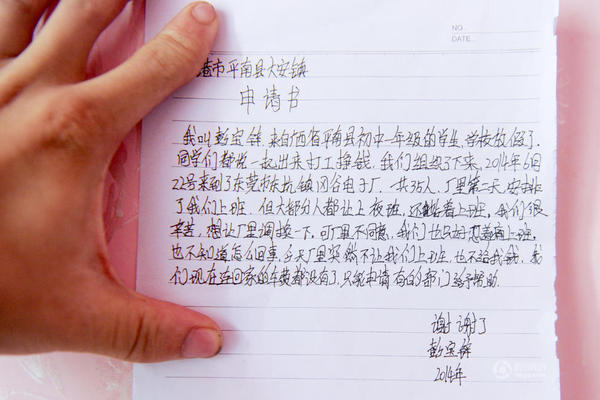 NO.
DATE.
港市平南县大安镇
申请书
我叫彭宝锋,来自广西省平南县初中一年级的学生,学校放假了,
同学们都说一起出来打工挣钱,我们组织了下来,2014年6月
22号来到了东莞桥头抗镇冈谷电子厂,一共35人,厂里第二天安排
了我们上班,但大部分人都让上夜班,还能着上班,我们很
辛苦,想让厂里调换一下,可厂里不同意,我们也只好忍着病上班,
也不知道怎么回事,今天厂里突然不让我们上班,也不给我钱,我
们现在连回家的车费都没有了,只能申请有的部门给予帮助。
谢谢了
彭宝锋
2014年